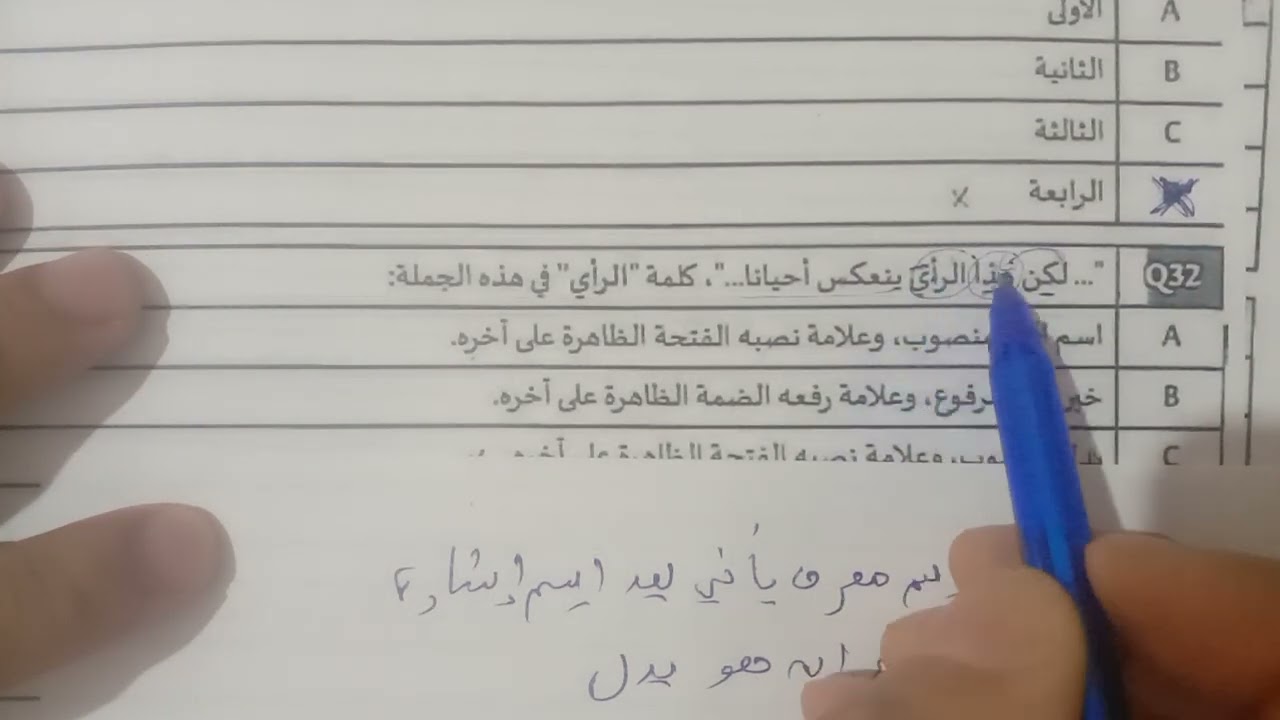 A الأولى
B الثانية
C الثالثة
الرابعة x
Q32 "... لكن هذا الرأي ينعكس أحيانا..."، كلمة "الرأي" في هذه الجملة:
A اسم منصوب، وعلامة نصبه الفتحة الظاهرة على آخره.
B خبر مرفوع، وعلامة رفعه الضمة الظاهرة على آخره.
C وعلامة نصبه الفتحة الظاهرة على آخره
معرف يأتي بعد اسم إشارة
هو بدل